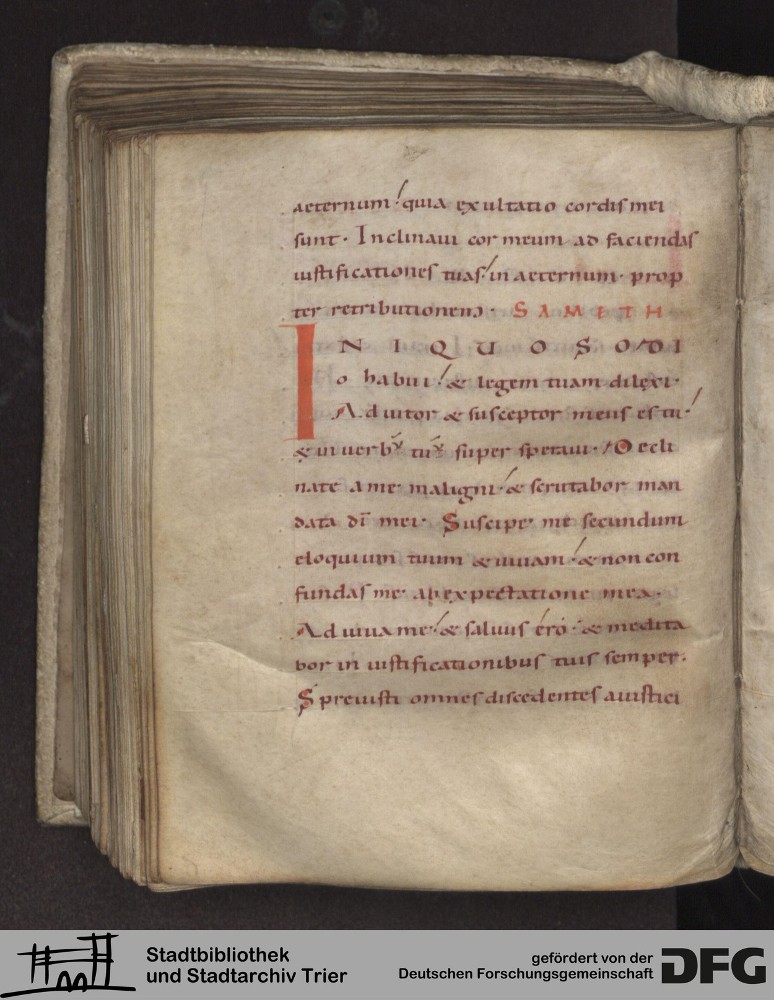 aeternum quia exultatio cordis mei
sunt. Inclinaui cor meum ad faciendas
iustificationes tuas in aeternum. prop
ter retributionem. SAMETH
INIQUOS ODI
o habui & legem tuam dilexi.
Adiutor & susceptor meus es tu
& in uerbū tuū super speraui. Decli
nate a me maligni & scrutabor man
data dī mei. Suscipe me secundum
eloquium tuum & uiuam & non con
fundas me ab expectatione mea.
Adiuua me & saluus ero & medita
bor in iustificationibus tuis semper.
Spreuisti omnes discedentes a iustici
Stadtbibliothek
und Stadtarchiv Trier
gefördert von der
Deutschen Forschungsgemeinschaft
DFG